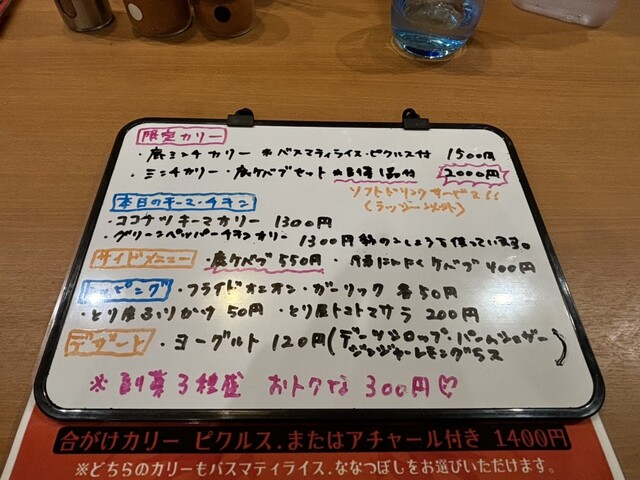 限定カリー
・鹿ミンチカリー ※バスマティライス・ピクルス付 1500円
・ミンチカリー・鹿ケバブセット ※日替1品付 2000円
本日のキーマ・チキン
ソフトドリンクサービス!!
(ラッシー以外)
・ココナッツキーマカリー 1300円
・グリーンペッパーチキンカリー 1300円
サイドメニュー ・鹿ケバブ 550円 ・豚にんにくケバブ 400円
トッピング ・フライドオニオン・ガーリック 各50円
・とり屋ふりかけ 50円 ・とり屋トマトマサラ 200円
デザート ・ヨーグルト 120円
※副菜3種盛 おトクな 300円♡
合がけカリー ピクルス.またはアチャール付き 1400円
※どちらのカリーもバスマティライス.ななつぼしをお選びいただけます。